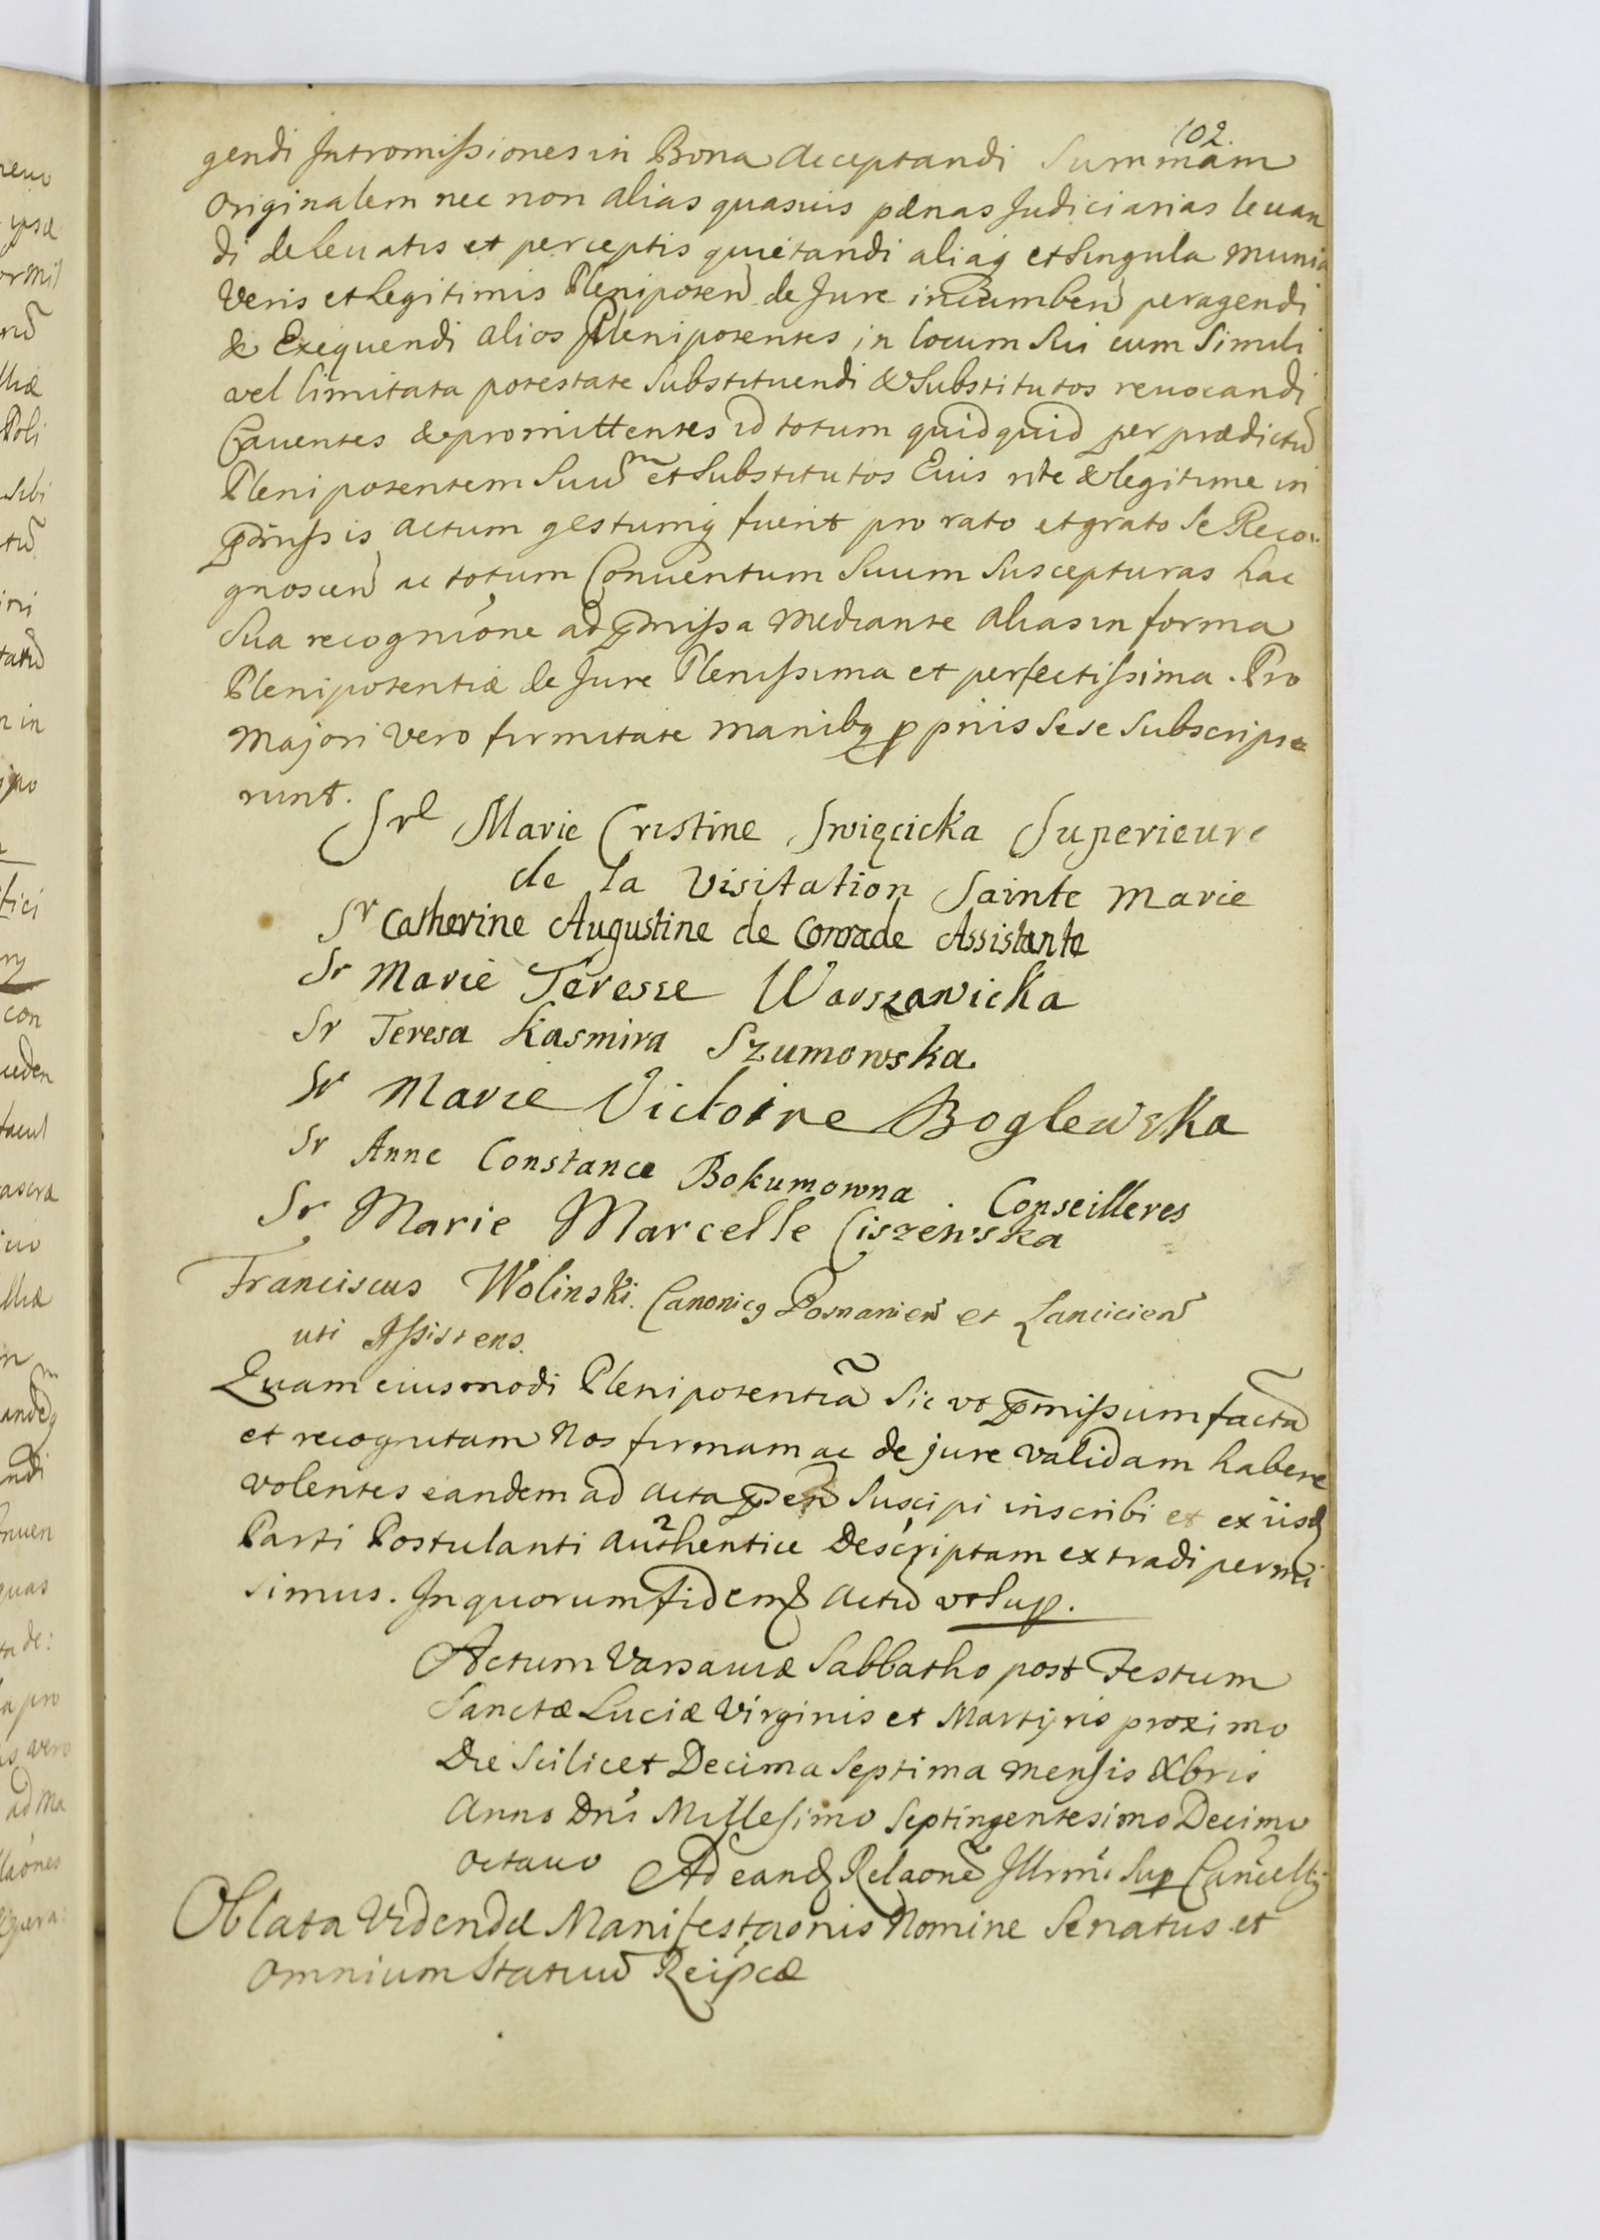 102.
gendi Intromissiones in Bona acceptandi Summam
originalem nec non alias quasvis pænas Judiciarias levan
di de levatis et perceptis quietandi aliaq et singula munia
veris et legitimis Plenipoten de Jure incumben peragendi
& Exequendi alios Plenipotentes in locum sui cum simili
vel limitata potestate substituendi & substitutos revocandi
Caventes & promittentes id totum quidquid per prædictū
Plenipotentem suūm et substitutos Eius rite & legitime in
p̄missis actum gestumq fuerit pro rato et grato se Reco-
gnoscen ac totum Conventum suum suscepturas hac
sua recognióne ad p̄missa mediante alias in forma
Plenipotentiæ de Jure Plenissima et perfectissima. Pro
Majori vero firmitate manibq ppriis sese subscripse
runt.
Srl Marie Cristine Swięcicka Superieure
de la visitation Sainte Marie
Sr Catherine Augustine de Conrade Assistante
Sr Marie Teresse Warszawicka
Sr Teresa Kasmira Szumowska.
Sr Marie Victoire Boglewska
Sr Anne Constance Bokumowna. Conseilleres
Sr Marie Marcelle Ciszewska
Franciscus Wolinski. Canonicq Posnanien et Lancicien
uti Assistens.
Quam eiusmodi Plenipotentiā sic vt p̄missum factā
et recognitam Nos firmam ac de jure validam habere
volentes eandem ad acta p̄sen suscipi inscribi et ex iisd
Parti Postulanti authentice descriptam extradi permi
simus. In quorum fidem Actū vt sup.
Actum Varsaviæ Sabbatho post Festum
Sanctæ Luciæ Virginis et Martyris proximo
Die scilicet Decima septima mensis Xbris
Anno Dni Millesimo Septingentesimo Decimo
octavo Ad eand Relaonē Illrmi Sup Cancellrj
Oblata Videndæ Manifestaonis Nomine Senatus et
omnium statuū Reipcæ